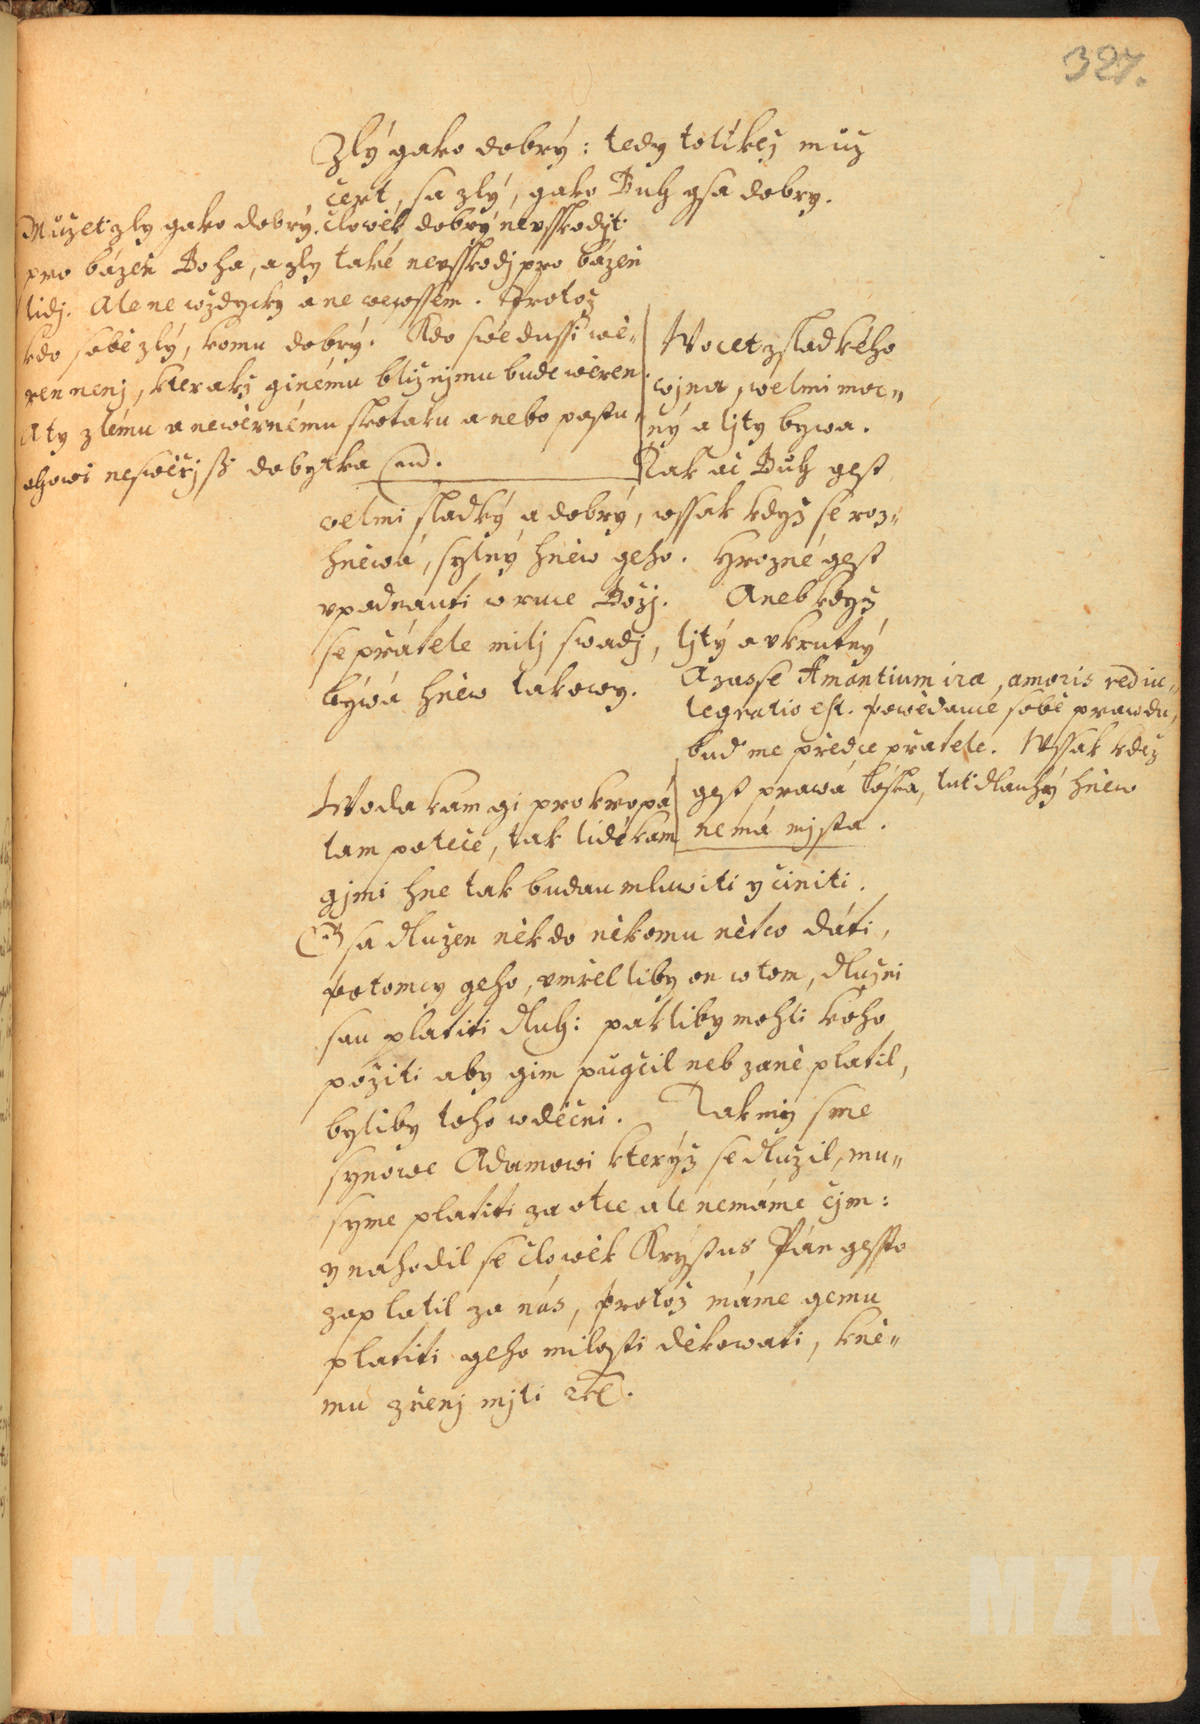 327.
Zlý gako dobrý: tedy tolikéž muž
čert, sa zlý, gako Buh gsa dobry.
Mužet zly gako dobrý. člowěk dobrý neusskodjt
pro bázeň Boha, a zly také neusskodj pro bázeň
lidj. Ale ne wždycky a ne wewssem. Protož
kdo sobě zlý, komu dobrý. Kdo swé dussi wě-
ren nenj, kterakž ginému bližnjmu bude weren.
A ty zlému a newěrnému skotaku a nebo pastu-
chowi neswěřjss dobytka
Wocet z sladkého
wjna, welmi moc-
ný a ljty bywa.
Tak ač Buh gest
welmi sladký a dobrý, wssak kdyz se roz-
hněwá, sylný hněw geho. Hrozné gest
vpadnauti w ruce Božj. Aneb kdyz
se přátele milj swadj, ljtý a vkrutný
býwá hněw takowy.
A zasse Amantium iræ, amoris redin-
tegratio est. Powědauc sobě prawdu,
bud me předce přatelé. Wssak kdež
gest prawá láska, tut dlauhý hněw
nemá mjsta.
Woda kam gi prokropá
tam poteče, tak lidé kam
gjmi hne tak budau mluwiti y činiti.
sa dlužen někdo někomu něco dáti,
potomcy geho, vmřel liby on w tom, dlužni
sau platiti dluh: pakliby mohli koho
požiti aby gim pugčil neb zaně platil,
byliby toho wděčni. Tak my sme
synowe Adamowi kterýž se dlužil, mu-
syme platiti za otce ale nemáme čjm:
y nahodil se člowěk Krystus Pán gessto
zaplatil za nás, protož máme gemu
platiti geho milosti děkowati, k ně-
mu zřenj mjti etc.
MZK
MZK